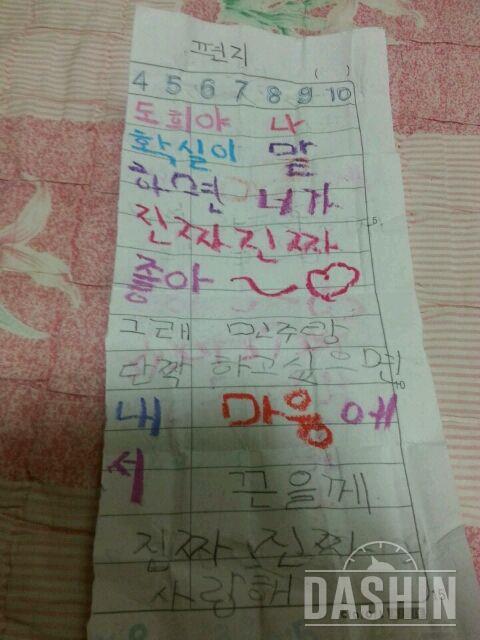 편지
( )
4 5 6 7 8 9 10
도희야 나
확실이 말
하면 너가
진짜 진짜
좋아 ~♡
5
그래 민주랑
단짝 하고 싶으면
10
내 마웅에
서
끈을게
진짜 진짜
사랑해
15
DASHIN